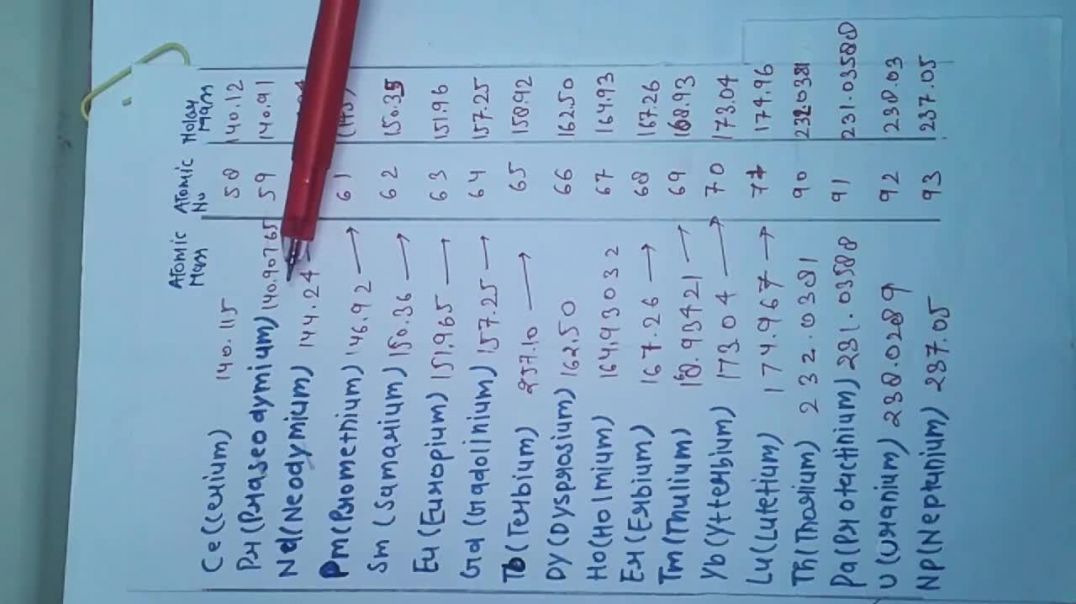 Atomic Mass Atomic No Molar Mass
Ce (Cerium) 140.115 58 140.12
Pr (Praseodymium) 140.90765 59 140.91
Nd (Neodymium) 144.24
Pm (Promethium) 146.92 → 61
Sm (Samarium) 150.36 → 62 150.35
Eu (Europium) 151.965 → 63 151.96
Gd (Gadolinium) 157.25 → 64 157.25
Tb (Terbium) 257.10 → 65 158.92
Dy (Dysprosium) 162.50 66 162.50
Ho (Holmium) 164.93032 67 164.93
Er (Erbium) 167.26 → 68 167.26
Tm (Thulium) 168.93421 → 69 168.93
Yb (Ytterbium) 173.04 → 70 173.04
Lu (Lutetium) 174.967 → 71 174.96
Th (Thorium) 232.0381 90 232.0381
Pa (Protactinium) 231.03588 91 231.03588
U (Uranium) 238.0289 92 238.03
Np (Neptunium) 237.05 93 237.05